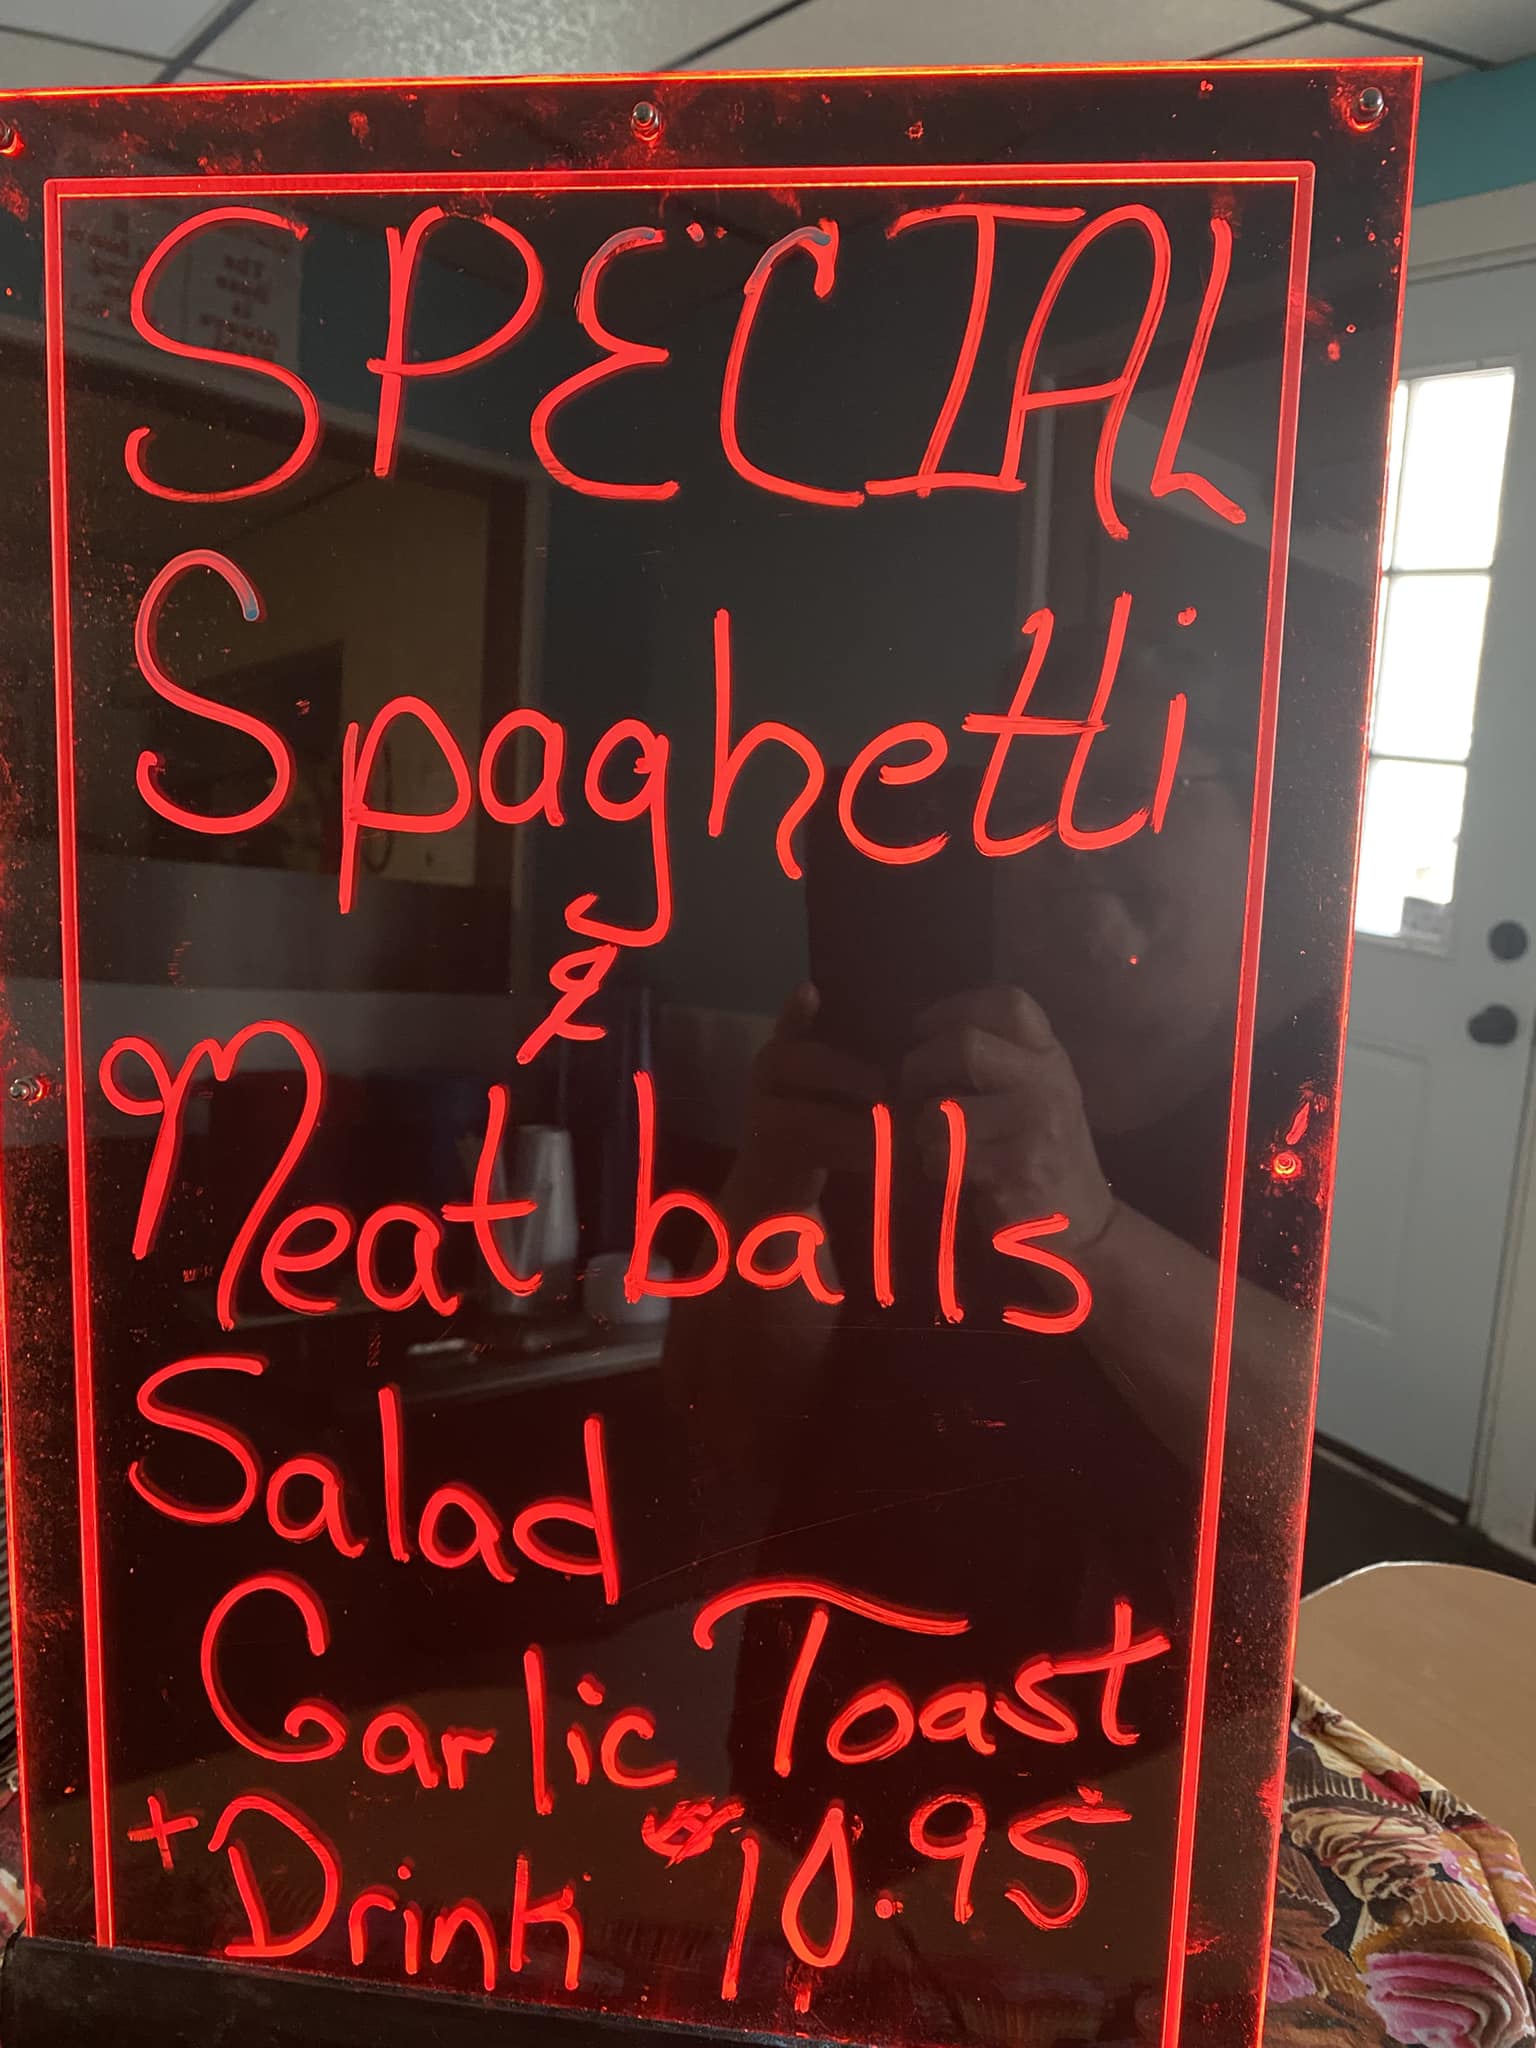 SPECIAL
Spaghetti
&
Meatballs
Salad
Garlic Toast
+ Drink $10.95